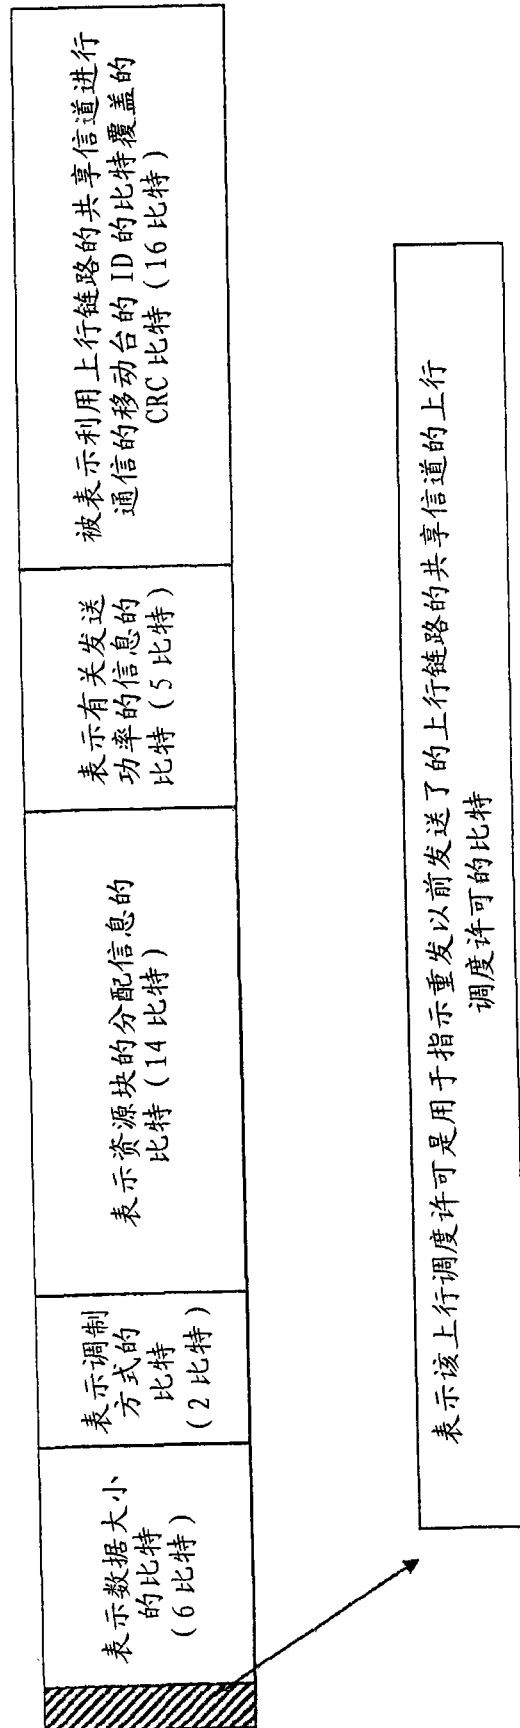 表示数据大小
的比特
(6比特)
表示调制
方式的
比特
(2比特)
表示资源块的分配信息的
比特(14比特)
表示有关发送
功率的信息的
比特(5比特)
被表示利用上行链路的共享信道进行
通信的移动台的ID的比特覆盖的
CRC比特(16比特)
表示该上行调度许可是用于指示重发以前发送了的上行链路的共享信道的上行
调度许可的比特